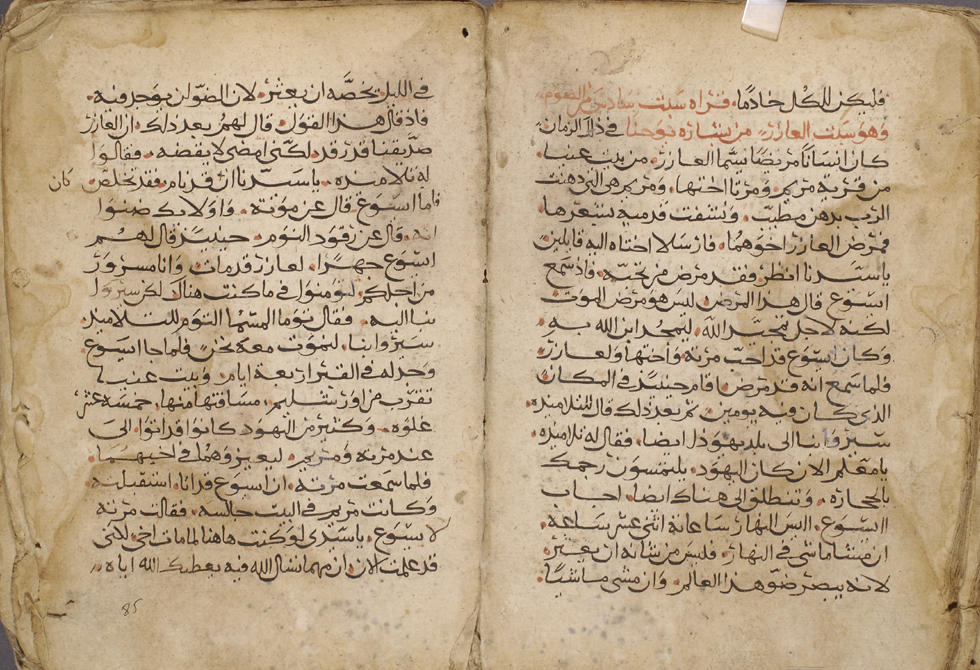 فليكن للكل خادما. قراة سبت سادس من الصوم.
وهو سبت العازر. من بشارة يوحنا في ذلك الزمان
كان انسانا مريضا يسما العازر. من بيت عنيا.
من قرية مريم. ومرتا اختها. ومريم هي التي دهنت
الرب بدهن مطيب. ونشفت قدميه بشعرها.
فمرض العازر اخوهما. فارسلا اختاه اليه قايلين
يا سيدنا انظر فقد مرض من تحبه. فاذ سمع
ايسوع قال هذا المرض ليس هو مرض الموت
لكنه لاجل تمجيد الله. ليمجد ابن الله به.
وكان ايسوع قد احب مرته واختها ولعازر
فلما سمع انه قد مرض. اقام حينيذ في المكان
الذي كان فيه يومين. ثم بعد ذلك قال لتلاميذه
سيروا بنا الى بلد يهوذا ايضا. فقال له تلاميذه
يا معلم الان كان اليهود. يلتمسون رجمك
بالحجارة. وتنطلق الى هناك ايضا. اجاب
ايسوع. اليس النهار ساعاته اثني عشر ساعة.
ان مشا ماشي في النهار. فليس من شانه ان يعثر.
لانه يبصر ضو هذا العالم. وان مشى ماشيا
في الليل. يخصه ان يعثر. لان الضو لن يوجد فيه.
فاذ قال هذا القول. قال لهم بعد ذلك. ان العازر
صديقنا قد رقد. لكني امضي لايقضه. فقالوا
له تلاميذه. يا سيدنا ان قد نام فقد تخلص. كان
فاما ايسوع قال عن موته. واولايك ضنوا
انه قال عن رقود النوم. حينيذ قال لهم
ايسوع جهرا. لعازر قد مات. وانا مسرور
من اجلكم. لتومنوا في ما كنت هناك لكن سيروا
بنا اليه. فقال توما المسما التوم للتلاميذ.
سيروا بنا. لنموت معه نحن. فلما جا ايسوع
وجد له في القبر اربعة ايام. وبيت عنيا
تقرب من اورشليم. مسافتها منها. خمسة عشر
غلوه. وكثير من اليهود كانوا قد اتوا الى
عند مرته ومريم. ليعزوهما في اخيهما.
فلما سمعت مرته. ان ايسوع قد اتا. استقبلته
وكانت مريم في البيت جالسه. فقالت مرته
لايسوع. يا سيدي لو كنت هاهنا لما مات اخي. لكني
قد علمت الان. ان مهما تسال الله فيه يعطيك الله اياه
85